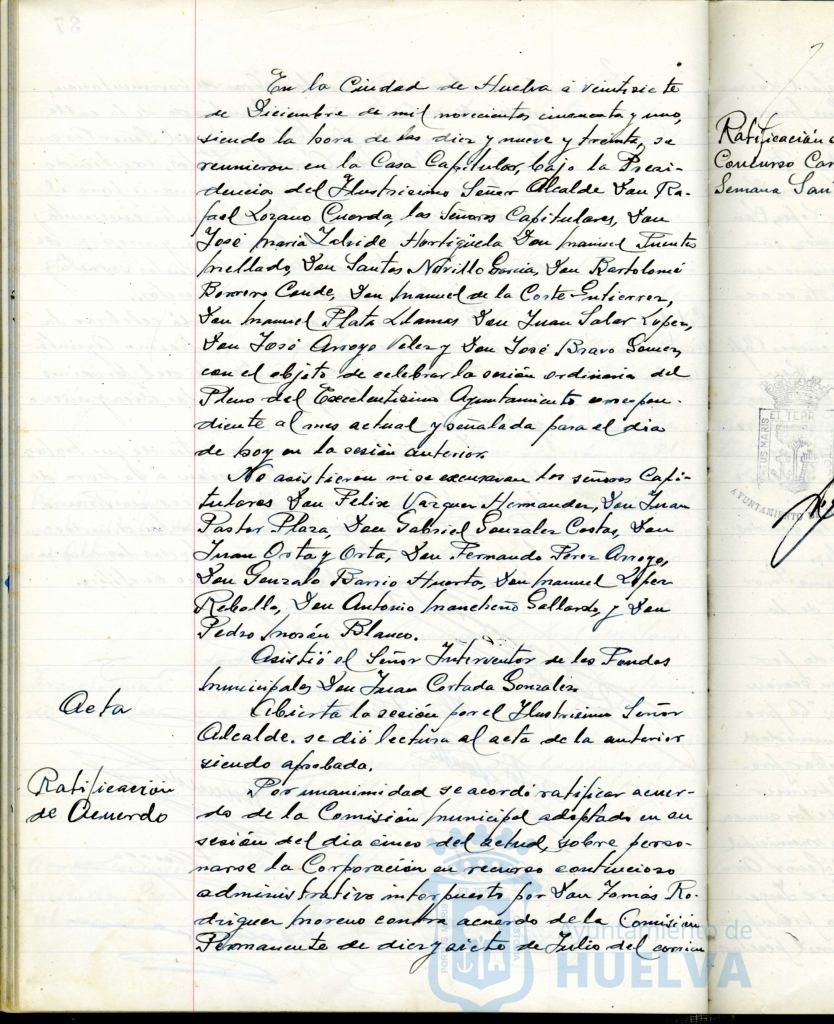 En la Ciudad de Huelva a veintisiete
de Diciembre de mil novecientos cincuenta y uno,
siendo la hora de las diez y nueve y treinta, se
reunieron en la Casa Capitular, bajo la Presi-
dencia del Ilustrisimo Señor Alcalde Don Ra-
fael Lozano Cuerda, los Señores Capitulares, Don
José Maria Hortigüela Don Manuel Fuentes
Mellado, Don Santos Novillo Garcia, Don Bartolomé
Borrero Conde, Don Manuel de la Corte Gutierrez,
Don Manuel Plata Llamas Don Juan Salar Lopez,
Don José Arroyo Velez y Don José Bravo Gomez,
con el objeto de celebrar la sesión ordinaria del
Pleno del Excelentisimo Ayuntamiento correspon-
diente al mes actual y señalada para el dia
de hoy en la sesión anterior.
No asistieron ni se excusaron los señores Capi-
tulares Don Felix Vazquez Hernandez, Don Juan
Pastor Plaza, Don Gabriel Gonzalez Costas, Don
Juan Orta y Orta, Don Fernando Perez Arroyo,
Don Gonzalo Barrio Huerta, Don Manuel Lopez
Rebollo, Don Antonio Mancheño Gallardo, y Don
Pedro Morán Blanco.
Asistió el Señor Interventor de los Fondos
Municipales Don Juan Cortada Gonzalez
Acta
Abierta la sesión por el Ilustrisimo Señor
Alcalde. se dió lectura al acta de la anterior
siendo aprobada.
Ratificación
de Acuerdo
Por unanimidad se acordó ratificar acuer-
do de la Comisión Municipal adoptado en su
sesión del dia cinco del actual, sobre perso-
narse la Corporación en recurso contencioso
administrativo interpuesto por Don Tomás Ro-
driguez Moreno contra acuerdo de la Comisión
Permanente de diez y siete de Julio del corrien
Ratificación
Concurso Car
Semana San
Ayuntamiento de
HUELVA